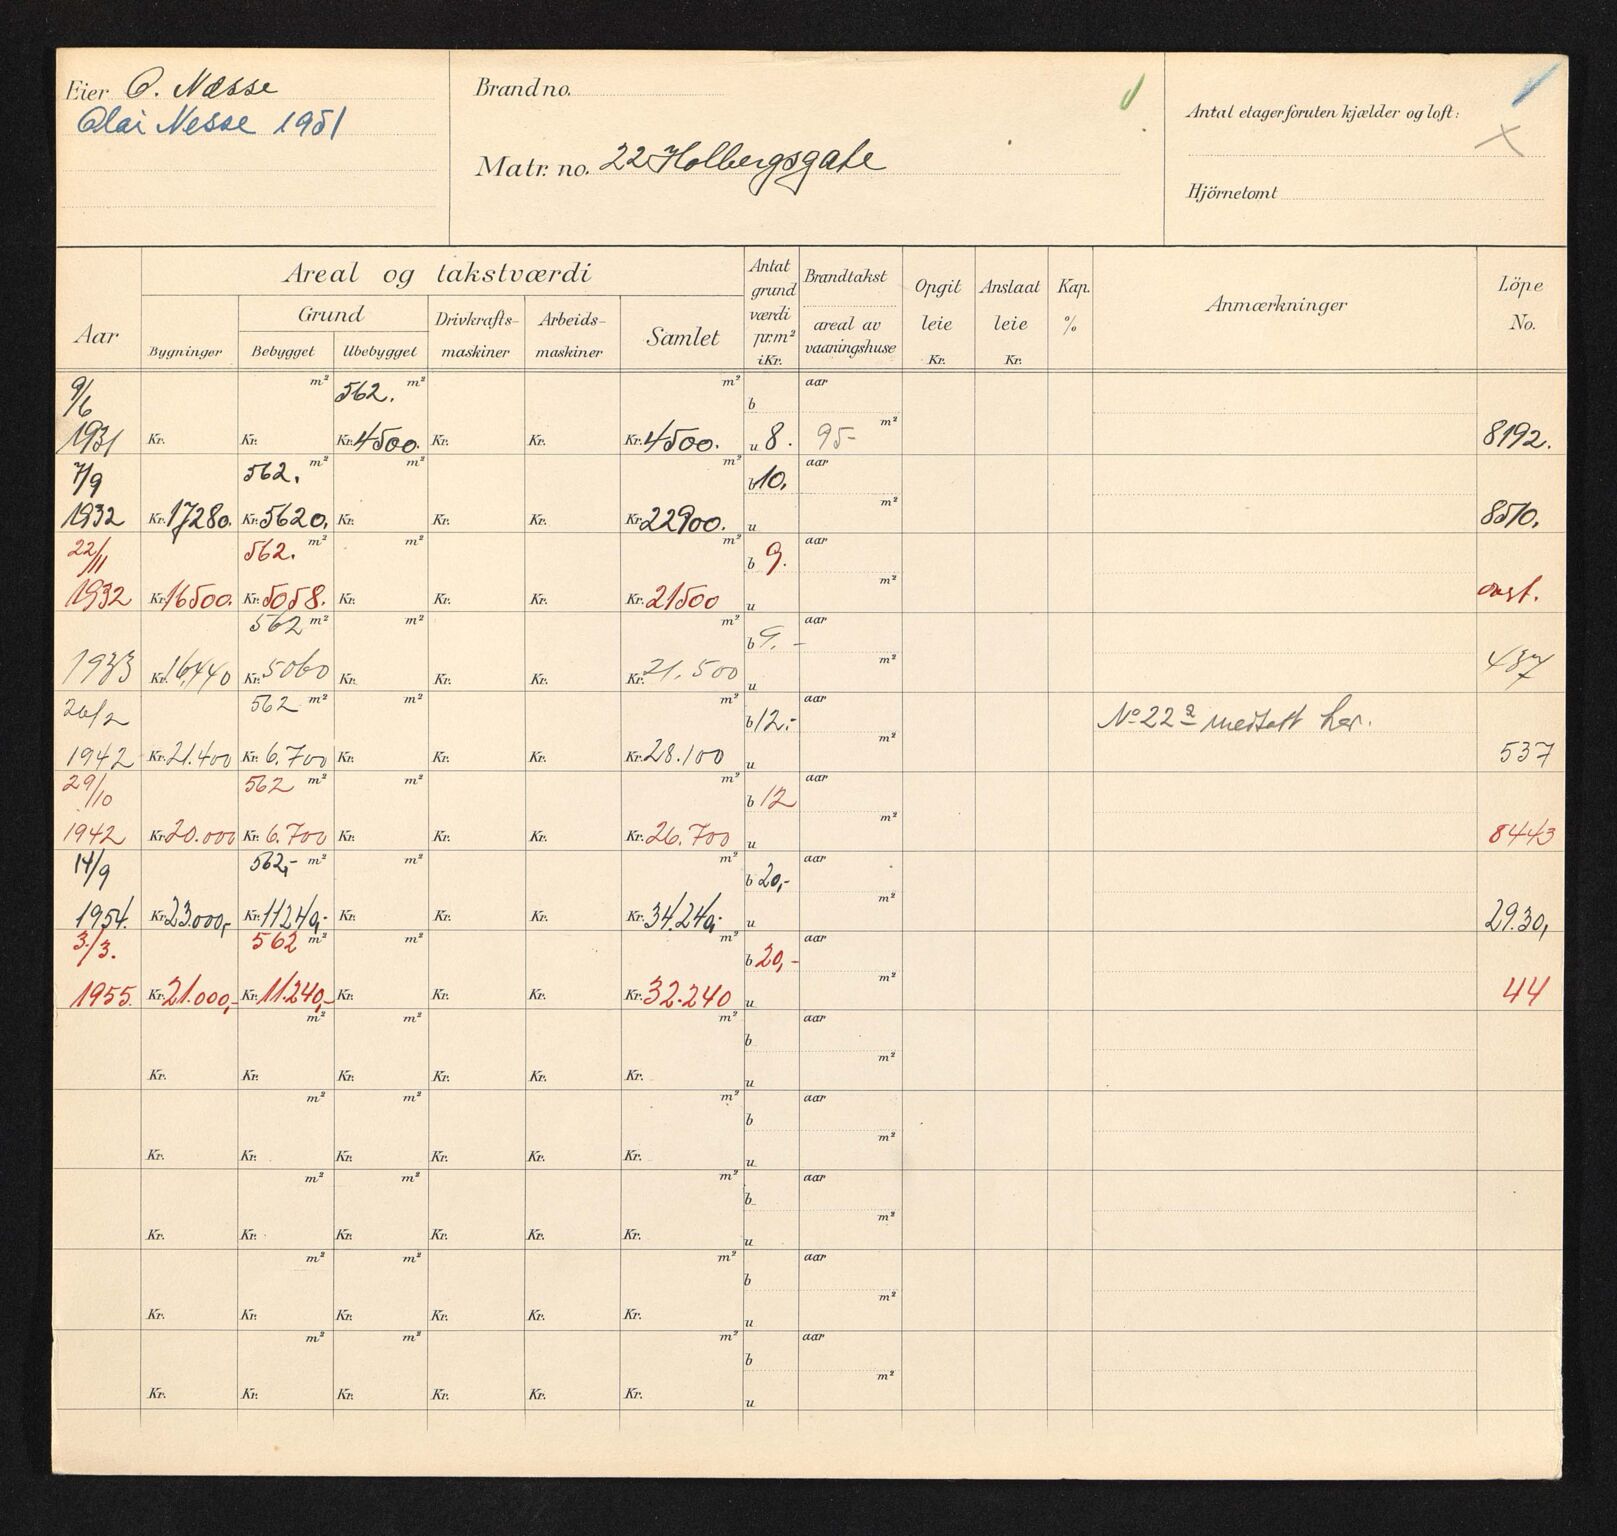 Eier O. Næsse
Olai Nesse 1951
Brand no.
Matr. no. 22 Holbergsgate
Antal etager foruten kjælder og loft:
Hjörnetomt
Aar
Areal og takstværdi
Bygninger
Grund
Bebygget Ubebygget
Drivkrafts-
maskiner
Arbeids-
maskiner
Samlet
Antat
grund
værdi
pr. m²
i Kr.
Brandtakst
areal av
vaaningshuse
Opgit
leie
Kr.
Anslaat
leie
Kr.
Kap.
%
Anmærkninger
Löpe
No.
9/6 m² 562. m² m² b aar
1931 Kr. Kr. Kr. 4500. Kr. Kr. Kr. 4500. u 8. 95- m² 8192.
7/9 562. m² m² m² b 10. aar
1932 Kr. 17280. Kr. 5620. Kr. Kr. Kr. Kr. 22900. u m² 8510.
22/11 562. m² m² m² b 9. aar
1932 Kr. 16500. Kr. 5058. Kr. Kr. Kr. Kr. 21500 u m²
562 m² m² m² b 9.- aar
1933 Kr. 16.440 Kr. 5060 Kr. Kr. Kr. Kr. 21.500 u m² 437
26/2 562 m² m² m² b 12.- aar No 22a medtatt her.
1942 Kr. 21.400 Kr. 6.700 Kr. Kr. Kr. Kr. 28.100 u m² 537
29/10 562 m² m² m² b 12 aar
1942 Kr. 20.000 Kr. 6.700 Kr. Kr. Kr. Kr. 26.700 u m² 8443
14/9 562,- m² m² m² b 20,- aar
1954. Kr. 23.000,- Kr. 11240,- Kr. Kr. Kr. Kr. 34.240,- u m² 2930,
3./3. 562 m² m² m² b 20,- aar
1955. Kr. 21.000,- Kr. 11.240,- Kr. Kr. Kr. Kr. 32.240 u m² 44
m² m² m² b aar
Kr. Kr. Kr. Kr. Kr. Kr. u m²
m² m² m² b aar
Kr. Kr. Kr. Kr. Kr. Kr. u m²
m² m² m² b aar
Kr. Kr. Kr. Kr. Kr. Kr. u m²
m² m² m² b aar
Kr. Kr. Kr. Kr. Kr. Kr. u m²
m² m² m² b aar
Kr. Kr. Kr. Kr. Kr. Kr. u m²